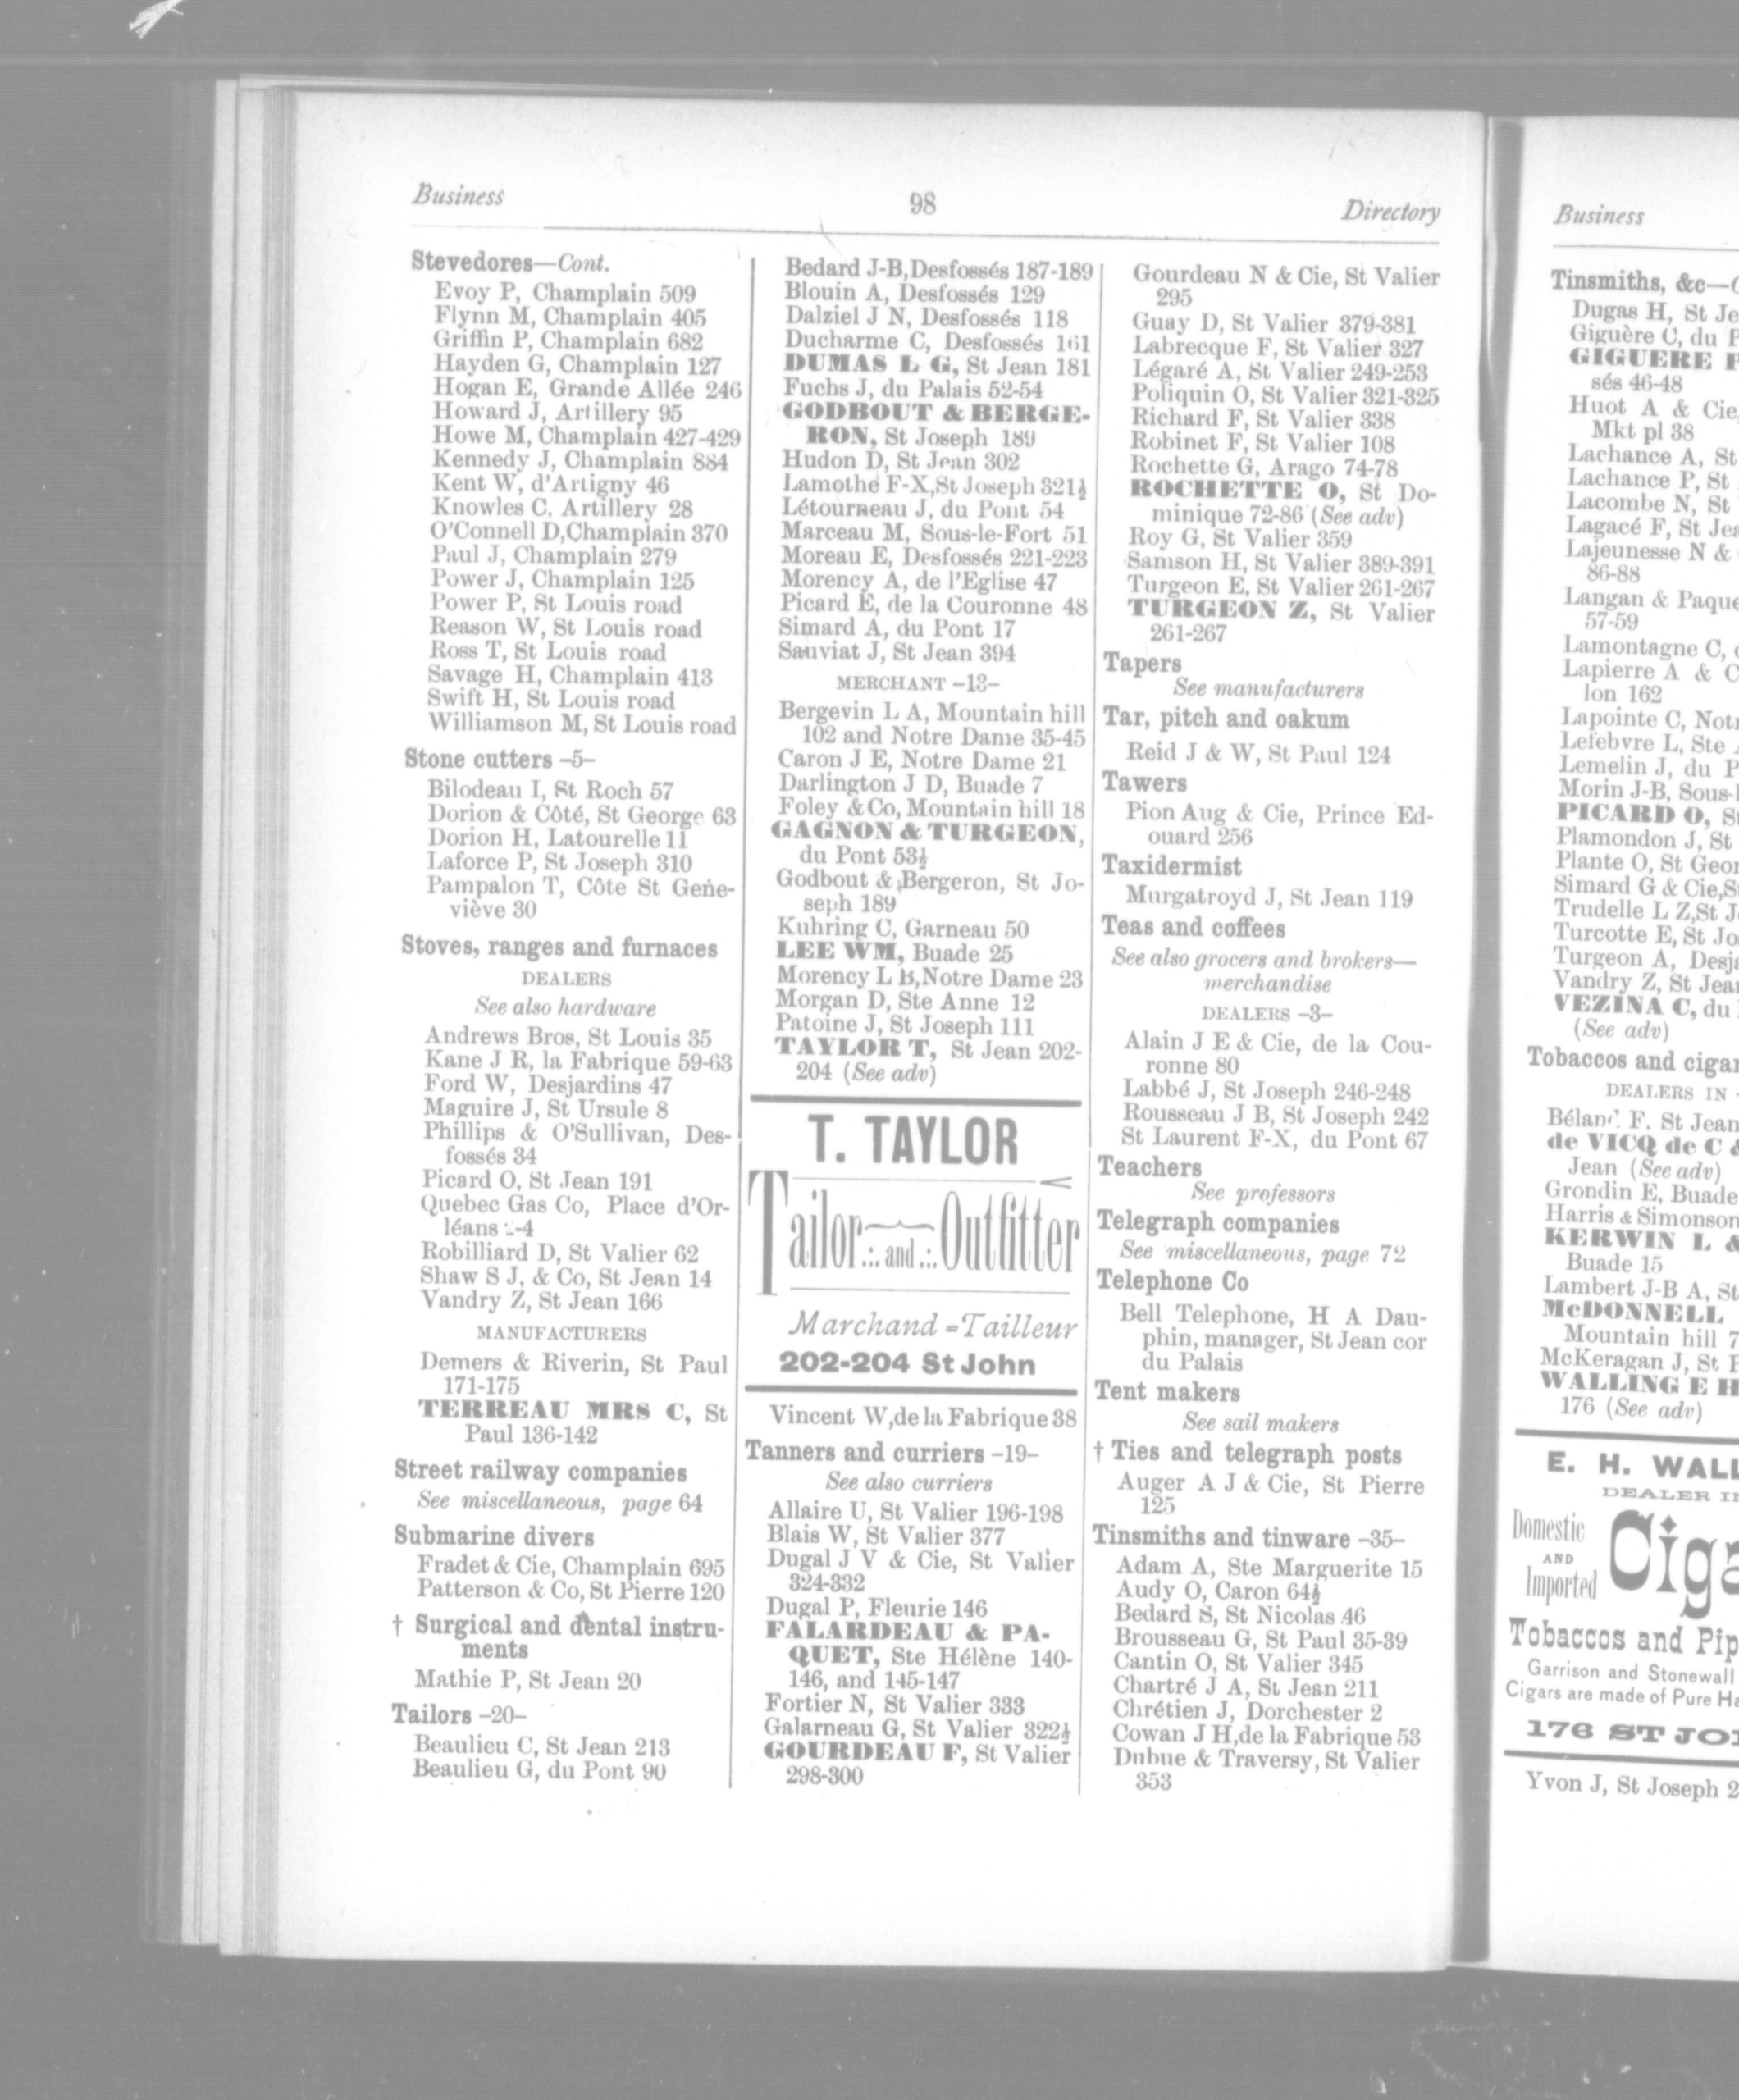 Business
98
Directory
Stevedores—Cont.
Evoy P, Champlain 509
Flynn M, Champlain 405
Griffin P, Champlain 682
Hayden G, Champlain 127
Hogan E, Grande Allée 246
Howard J, Artillery 95
Howe M, Champlain 427-429
Kennedy J, Champlain 884
Kent W, d'Artigny 46
Knowles C, Artillery 28
O'Connell D,Champlain 370
Paul J, Champlain 279
Power J, Champlain 125
Power P, St Louis road
Reason W, St Louis road
Ross T, St Louis road
Savage H, Champlain 413
Swift H, St Louis road
Williamson M, St Louis road
Stone cutters –5–
Bilodeau I, St Roch 57
Dorion & Côté, St George 63
Dorion H, Latourelle 11
Laforce P, St Joseph 310
Pampalon T, Côte St Gene-
viève 30
Stoves, ranges and furnaces
DEALERS
See also hardware
Andrews Bros, St Louis 35
Kane J R, la Fabrique 59-63
Ford W, Desjardins 47
Maguire J, St Ursule 8
Phillips & O'Sullivan, Des-
fossés 34
Picard O, St Jean 191
Quebec Gas Co, Place d'Or-
léans -4
Robilliard D, St Valier 62
Shaw S J, & Co, St Jean 14
Vandry Z, St Jean 166
MANUFACTURERS
Demers & Riverin, St Paul
171-175
TERREAU MRS C, St
Paul 136-142
Street railway companies
See miscellaneous, page 64
Submarine divers
Fradet & Cie, Champlain 695
Patterson & Co, St Pierre 120
† Surgical and dental instru-
ments
Mathie P, St Jean 20
Tailors –20–
Beaulieu C, St Jean 213
Beaulieu G, du Pont 90
Bedard J-B,Desfossés 187-189
Blouin A, Desfossés 129
Dalziel J N, Desfossés 118
Ducharme C, Desfossés 161
DUMAS L G, St Jean 181
Fuchs J, du Palais 52-54
GODBOUT & BERGE-
RON, St Joseph 189
Hudon D, St Jean 302
Lamothe F-X,St Joseph 321½
Létourneau J, du Pont 54
Marceau M, Sous-le-Fort 51
Moreau E, Desfossés 221-223
Morency A, de l'Eglise 47
Picard E, de la Couronne 48
Simard A, du Pont 17
Sauviat J, St Jean 394
MERCHANT –13–
Bergevin L A, Mountain hill
102 and Notre Dame 35-45
Caron J E, Notre Dame 21
Darlington J D, Buade 7
Foley & Co, Mountain hill 18
GAGNON & TURGEON,
du Pont 53½
Godbout & Bergeron, St Jo-
seph 189
Kuhring C, Garneau 50
LEE WM, Buade 25
Morency L B,Notre Dame 23
Morgan D, Ste Anne 12
Patoine J, St Joseph 111
TAYLOR T, St Jean 202-
204 (See adv)
T. TAYLOR
Tailor .: and :. Outfitter
Marchand = Tailleur
202-204 St John
Vincent W,de la Fabrique 38
Tanners and curriers –19–
See also curriers
Allaire U, St Valier 196-198
Blais W, St Valier 377
Dugal J V & Cie, St Valier
324-332
Dugal P, Fleurie 146
FALARDEAU & PA-
QUET, Ste Hélène 140-
146, and 145-147
Fortier N, St Valier 333
Galarneau G, St Valier 322½
GOURDEAU F, St Valier
298-300
Gourdeau N & Cie, St Valier
295
Guay D, St Valier 379-381
Labrecque F, St Valier 327
Légaré A, St Valier 249-253
Poliquin O, St Valier 321-325
Richard F, St Valier 338
Robinet F, St Valier 108
Rochette G, Arago 74-78
ROCHETTE O, St Do-
minique 72-86 (See adv)
Roy G, St Valier 359
Samson H, St Valier 389-391
Turgeon E, St Valier 261-267
TURGEON Z, St Valier
261-267
Tapers
See manufacturers
Tar, pitch and oakum
Reid J & W, St Paul 124
Tawers
Pion Aug & Cie, Prince Ed-
ouard 256
Taxidermist
Murgatroyd J, St Jean 119
Teas and coffees
See also grocers and brokers—
merchandise
DEALERS –3–
Alain J E & Cie, de la Cou-
ronne 80
Labbé J, St Joseph 246-248
Rousseau J B, St Joseph 242
St Laurent F-X, du Pont 67
Teachers
See professors
Telegraph companies
See miscellaneous, page 72
Telephone Co
Bell Telephone, H A Dau-
phin, manager, St Jean cor
du Palais
Tent makers
See sail makers
† Ties and telegraph posts
Auger A J & Cie, St Pierre
125
Tinsmiths and tinware –35–
Adam A, Ste Marguerite 15
Audy O, Caron 64½
Bedard S, St Nicolas 46
Brousseau G, St Paul 35-39
Cantin O, St Valier 345
Chartré J A, St Jean 211
Chrétien J, Dorchester 2
Cowan J H,de la Fabrique 53
Dubue & Traversy, St Valier
353
Business
Tinsmiths, &c—
Dugas H, St Je
Giguère C, du P
GIGUERE
sés 46-48
Huot A & Cie,
Mkt pl 38
Lachance A, St
Lachance P, St
Lacombe N, St
Lagacé F, St Jea
Lajeunesse N &
86-88
Langan & Paque
57-59
Lamontagne C,
Lapierre A & C
lon 162
Lapointe C, Notr
Lefebvre L, Ste
Lemelin J, du P
Morin J-B, Sous-
PICARD O, St
Plamondon J, St
Plante O, St Geor
Simard G & Cie,S
Trudelle L Z,St J
Turcotte E, St Jo
Turgeon A, Desj
Vandry Z, St Jea
VEZINA C, du
(See adv)
Tobaccos and cigar
DEALERS IN
Béland F. St Jean
de VICQ de C &
Jean (See adv)
Grondin E, Buade
Harris & Simonson
KERWIN L &
Buade 15
Lambert J-B A, St
McDONNELL
Mountain hill 7
McKeragan J, St P
WALLING E H
176 (See adv)
E. H. WALL
DEALER IN
Domestic
AND
Imported
Ciga
Tobaccos and Pip
Garrison and Stonewall
Cigars are made of Pure Ha
176 ST JO
Yvon J, St Joseph 2